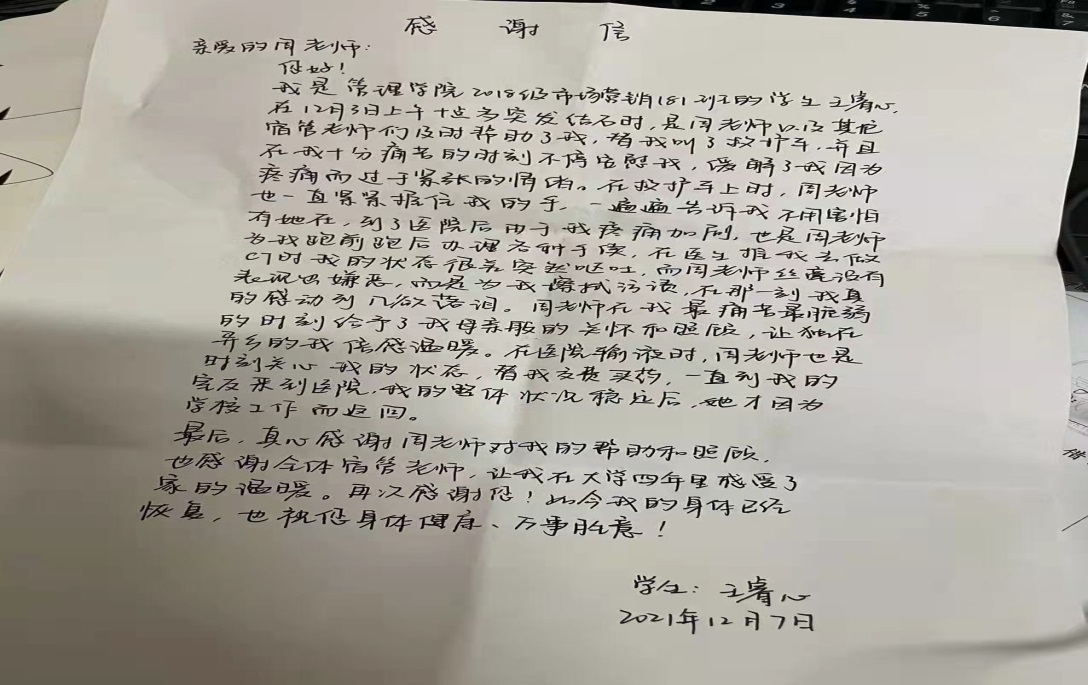 感 谢 信
亲爱的周老师：
您好！
我是管理学院2018级市场营销181班的学生王睿心，
在12月3日上午十点多突发结石时，是周老师以及其他
宿管老师们及时帮助了我，替我叫了救护车，并且
在我十分痛苦的时刻不停安慰我，缓解了我因为
疼痛而过于紧张的情绪。在救护车上时，周老师
也一直紧紧握住我的手，一遍遍告诉我不用害怕
有她在，到了医院后由于我疼痛加剧，也是周老师
为我跑前跑后办理各种手续，在医生推我去做
CT时我的状态很差突然呕吐，而周老师丝毫没有
表现出嫌恶，而是为我擦拭污渍，在那一刻我真
的感动到几欲落泪。周老师在我最痛苦最脆弱
的时刻给予了我母亲般的关怀和照顾，让独在
异乡的我倍感温暖。在医院输液时，周老师也是
时刻关心我的状态，替我交费买药，一直到我的
室友来到医院，我的整体状况稳定后，她才因为
学校工作而返回。
最后，真心感谢周老师对我的帮助和照顾，
也感谢全体宿管老师，让我在大学四年里感受了
家的温暖。再次感谢您！如今我的身体已经
恢复，也祝您身体健康、万事胜意！
学生：王睿心
2021年12月7日